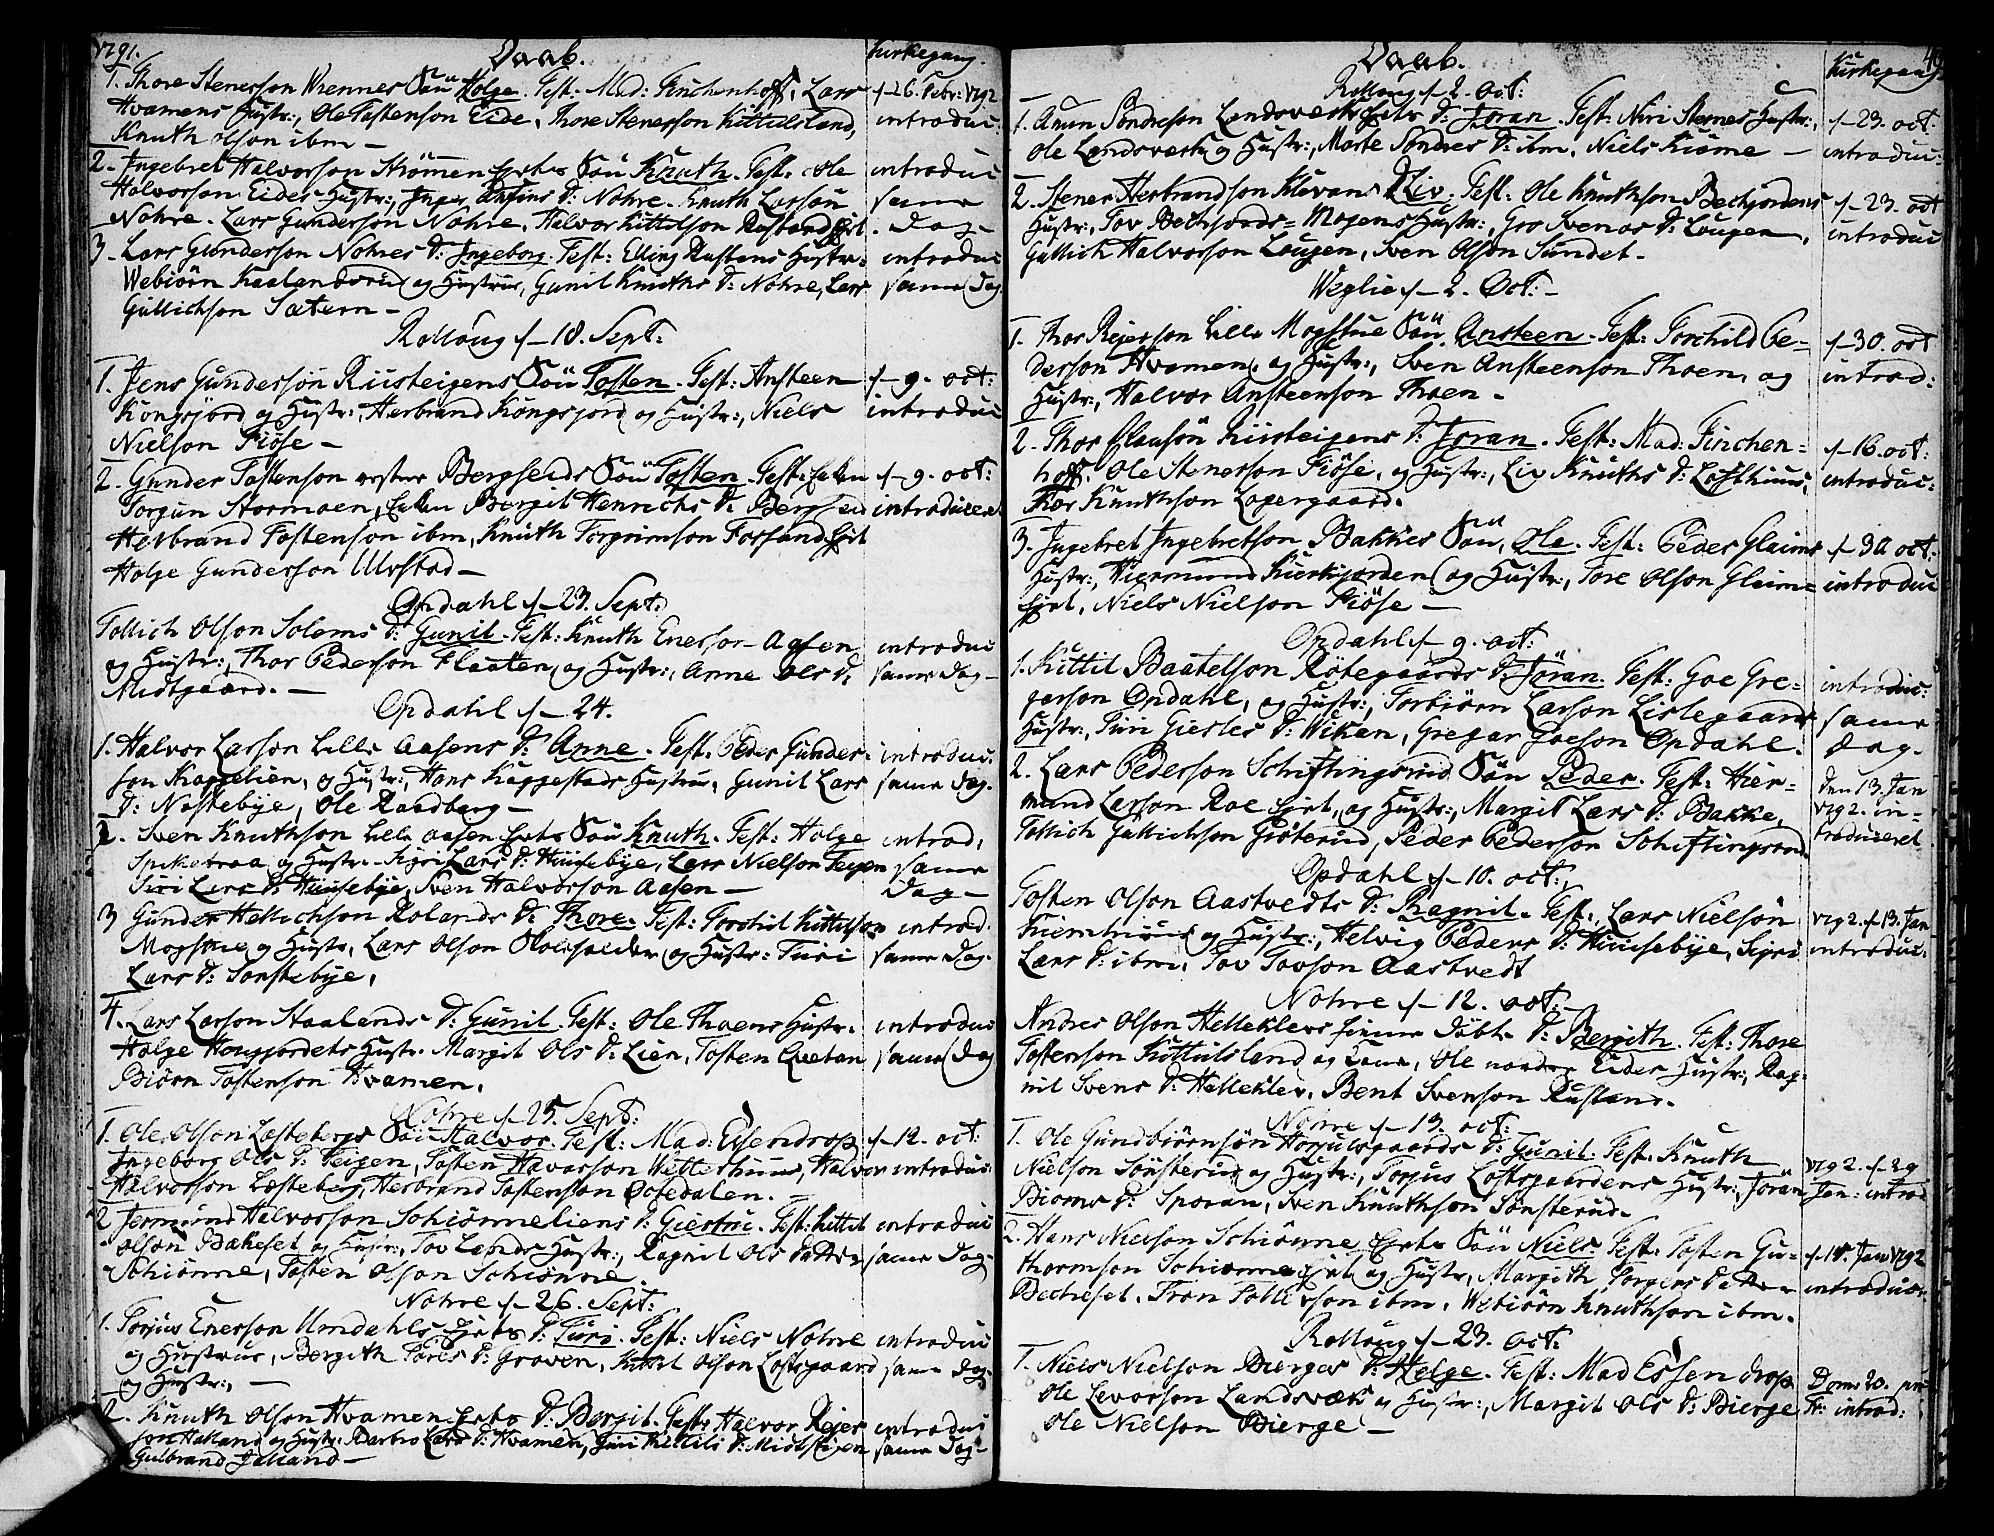 1791.
Daab.
Kirkegang.
1. Thore Stenerson Wrennes Sön Holge. Test: Mad: Finchenhoff, Lars
Hvamens Hustr:, Ole Tostenson Eide, Thore Stenerson Kittilsland,
Knuth Olson ibm —
f–26. Febr: 1792
introduc:
2. Ingebret Halvorson Strömmen Sön Knuth. Test: Ole
Halvorson Eides Hustr:, Inger Anfins D: Nohre. Knuth Larson
Nohre. Lars Gunderson Nohre, Halvor Kittilson Rustand
introduc
same
Dag–
3. Lars Gunderson Nohres D: Ingeborg. Test: Elling Rustans Hustr:
Webiörn Kaalandsrud og Hustrue, Gunil Knuths D: Nohre, Lars
Gullichson Sætern —
introduc
same Dag
Rolloug f–18. Sept:
1. Jens Gunderson Ruusteigens Sön Tosten. Test: Ansteen
Kongsjord og Hustr:, Herbrand Kongsjord og Hustr:, Niels
Nielson Fiöse —
f–9. oct:
introduc
2. Gunder Tostenson Bergseids Sön Tosten. Test:
Torgun Stormoen, Bergit Henrichs D: Bergseid
Herbrand Tostenson ibm, Knuth Torgrimson Fossand
Holge Gunderson Ulvstad —
f–9. oct:
introduceret
Opdahl f–23. Sept:
Tollich Olson Solems D: Gunil. Test: Knuth Enerson Aasen
og Hustr:, Thor Pederson Flaaten, og Hustr:, Anne Ols D:
Midtgaard. —
introduc
same Dag–
Opdahl f–24.
1. Halvor Larson Lille Aasens D: Anne. Test: Peder Gunder-
son Skaggelien, og Hustr:, Hans Kaggestads Hustrue, Gunil Lars
D: Nöstebye, Ole Raadberg —
introduc.
same Dag.
2. Sven Knuthson Lille Aasen Sön Knuth. Test: Holge
Spikebraa og Hustr. Sigri Lars D: Huusebye, Lars Nielson Teigen
Siri Lars D: Huusebye, Sven Halvorson Aasen —
introd.
same
Dag–
3 Gunder Hellichson Rolands D: Thore. Test: Torchil Kittilson
Mogstue og Hustr, Lars Olson og Hustr: Turi
Lars D: Sonstebye,
introd.
same Dag.
4. Lars Larson Staalands D: Gunil. Test: Ole Thoens Hustr.
Holge Hougjordets Hustr. Margit Ols D: Lien, Tosten Qvetan
Biörn Tostenson Hvamen.
introduc
same Dag
Nohre f–25. Sept:
1. Ole Olson Lostebergs Sön Halvor. Test: Mad: Essendrop
Ingeborg Ols D: Teigen, Tosten Havarson Wetterhuus, Halvor
Halvorson Lösteberg, Herbrand Tostenson Öifedalen. —
f–12. oct:
introduc:
2 Jermund Halvorson Schiönneliens D: Giertru. Test: Kittil
Olson Bækeset og Hustr:, Tov Lands Hustr:, Ragnil Ols Datter
Schiönne, Tosten Olson Schiönne.
introduc
same Dag.
Nohre f–26. Sept:
1. Torjus Enerson Umdahls D: Turi. Test: Niels Nohre
og Hustrue, Bergith Tores D: Graven, Kittil Olson Loftsgaard
og Hustr:, —
introduc
same Dag
2. Knuth Olson Hvamen D: Bergit. Test: Halvor Rejer-
son Halland og Hustr: Barbro Lars D: Hvamen, Guri Kittils D: Midtstigen
Gulbrand Jalland —
introduc
same Dag–
Daab.
Kirkegang
Rolloug f–2. Oct:
1. Anun Sondreson Landsverk D: Joran. Test: Niri Sternes Hustr:,
Ole Landsverk og Hustr:, Marte Sondres D: ibm. Niels Kiöme —
f–23. oct:
introduc:
2. Stener Herbrandson Klevans D: Liv. Test: Ole Knuthson Bechjordens
Hustr:, Tov Bechjords-Mogens Hustr:, Gro Svenos D: Lougen,
Gullich Halvorson Lougen, Sven Olson Sundet.
f–23. oct
introduc
Weglie f–2. Oct: –
1. Thor Rejerson Lille Mogstue Sön Ansteen. Test: Torchild Pe-
derson Hvamen, og Hustr:, Sven Ansteenson Thoen, og
Hustr:, Halvor Ansteenson Thoen —
f–30. oct
introd:
2. Thor Olausön Kiisteigens D: Joran. Test: Mad: Finchen-
hoff. Ole Stenerson Fiöse, og Hustr:, Liv Knuths D: Lofthuus,
Thor Knuthson Lagergaard.
f–16. oct:
introduc:
3. Ingebret Ingebretson Bakkes Sön, Ole. Test: Peder Glaims
Hustr:, Hiermund Kirkjorden og Hustr:, Tore Olson Glaime
Niels Nielson Fiöse —
f–30 oct:
introduc
Opdahl f–9. oct:
1. Kittil Baatelson Rötegaards D: Jöran. Test: Goe Gre-
gerson Opdahl, og Hustr:, Torbiörn Larson Lislegaards
Hustr:, Turi Giesles D: Wikan, Gregar Goeson Opdahl.
introduc:
same
Dag.
2. Lars Pederson Schiftingsrud Sön Peder. Test: Hier-
mund Larson Roe og Hustr:, Margit Lars D: Bakke,
Tollich Gullichson Gröterud, Peder Pederson Schiftingsrud
den 13. Jan
1792. in-
troduceret
Opdahl f–10. oct:
Tosten Olson Aastvedts D: Ragnil. Test:, Lars Nielsön
Fiemhuus og Hustr:, Helvig Peders D: Huusebye, Sigri
Lars D: ibm, Tov Tovson Aastvedt
1792. f–13. Jan
introduc.
Nohre f–12. oct:
Andres Olson Helleklevs hiemme döbt D: Bergith. Test: Thore
Tostenson Kittilsland og Kone, Ole nordre Eides Hustr:, Rag-
nil Svens D: Helleklev, Bent Svenson Rustand.
Nohre f–13. oct:
1. Ole Gundbiörnsön Horjulsgaards D: Gunil. Test: Knuth
Nielson Sönsterud og Hustr:, Torjus Loftsgaardens Hustr:, Jöran
Biorns D: Sporan, Sven Knuthson Sönsterud.
1792. f–29
Jan: introd
2. Hans Nielson Schiönne Sön Niels. Test: Tosten Gu-
thormson Schiönne og Hustr, Margith Torgers Datter
Becheset. Tron Tollefson ibm. Webiörn Knuthson ibm.
f–15. Jan 1792
introduc.
Rolloug f–23. oct:
1. Niels Nielson Bierges D: Helge. Test: Mad Essendrop
Ole Levorson Landsverk og Hustr:, Margit Ols D: Bierge
Ole Nielson Bierge —
Dom: 20. p:
Tr: introd: